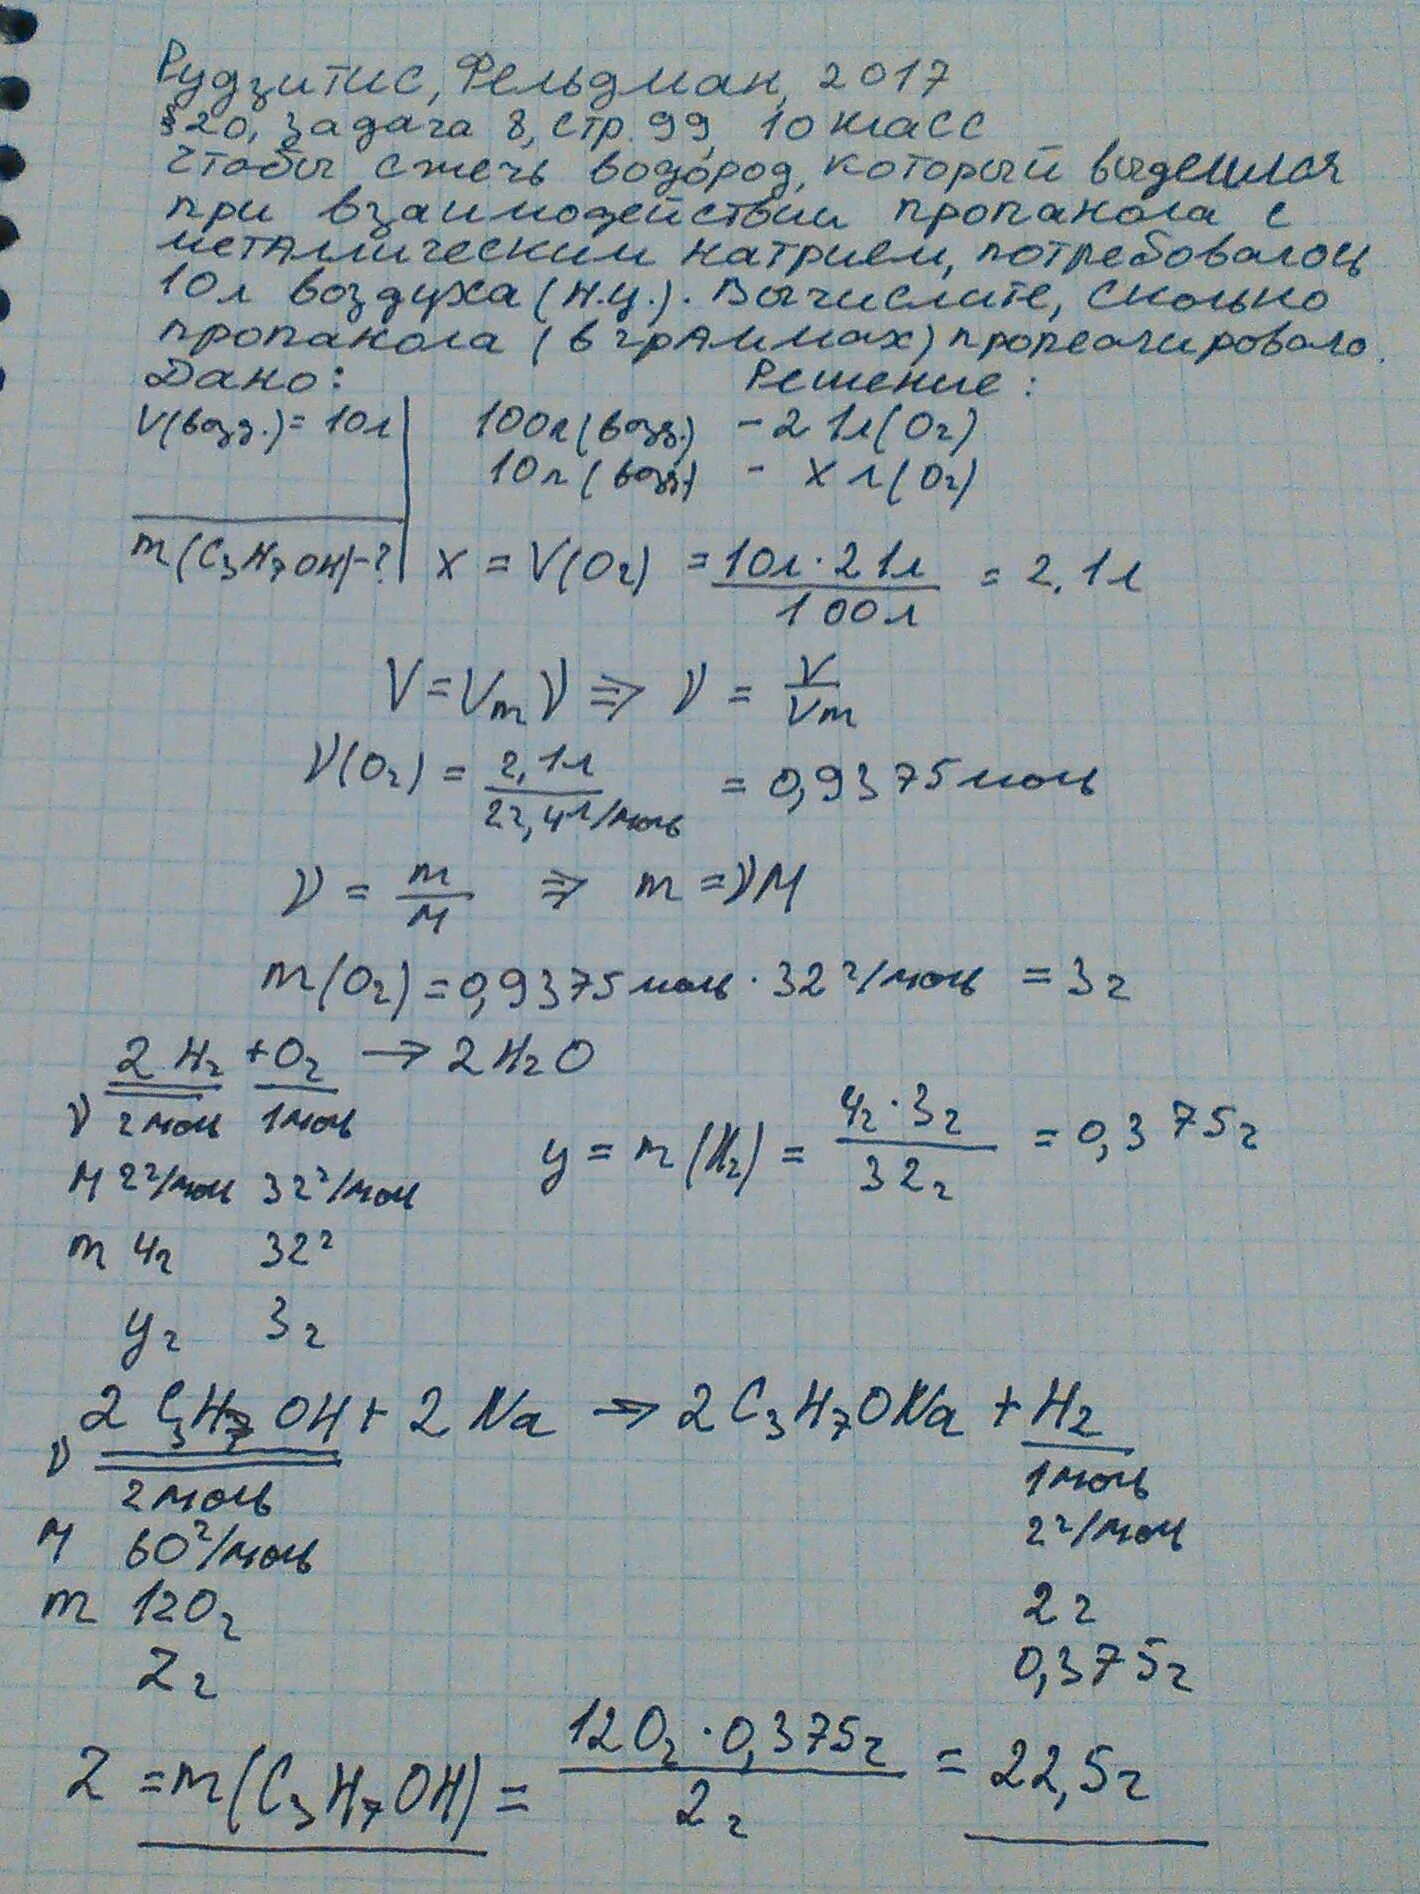 Рудзитис, Фельдман, 2017
§20, задача 8, стр. 99, 10 класс
Чтобы сжечь водород, который выделился
при взаимодействии пропанола с
металлическим натрием, потребовалось
10л воздуха (н.у.). Вычислите, сколько
пропанола (в граммах) прореагировало.
Дано: Решение:
V(возд.) = 10л 100л (возд.) - 21л (O₂)
10л (возд.) - x л (O₂)
m(C₃H₇OH) - ? x = V(O₂) = 10л · 21л / 100л = 2,1л
V = Vm ν ⇒ ν = V / Vm
ν(O₂) = 2,1л / 22,4 л/моль = 0,9375 моль
ν = m / M ⇒ m = νM
m(O₂) = 0,9375 моль · 32 г/моль = 3г
2H₂ + O₂ → 2H₂O
ν 2моль 1моль y = m(H₂) = 4г · 3г / 32г = 0,375г
M 2 г/моль 32 г/моль
m 4г 32г
yг 3г
2C₃H₇OH + 2Na → 2C₃H₇ONa + H₂
ν 2моль 1моль
M 60 г/моль 2 г/моль
m 120г 2г
Zг 0,375г
Z = m(C₃H₇OH) = 120г · 0,375г / 2г = 22,5г